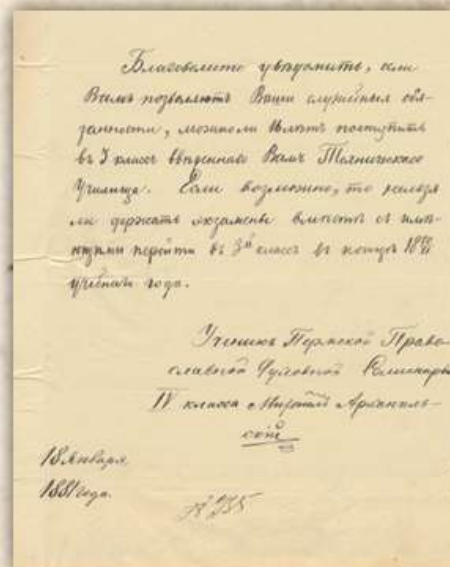 Благоволите увѣдомить, если
Вамъ позволятъ Ваши служебныя обя-
занности, можно ли поступить
въ 3 классъ ввѣреннаго Вамъ Техническаго
Училища. Если возможно, то нельзя
ли держать экзаменъ вмѣстѣ съ
перейти въ 3й классъ въ концѣ 1880/81
учебнаго года.
Ученикъ Пермской Право-
славной Духовной Семинаріи
IV класса Архангель-
скій
18 Января
1881 года.
№ 235